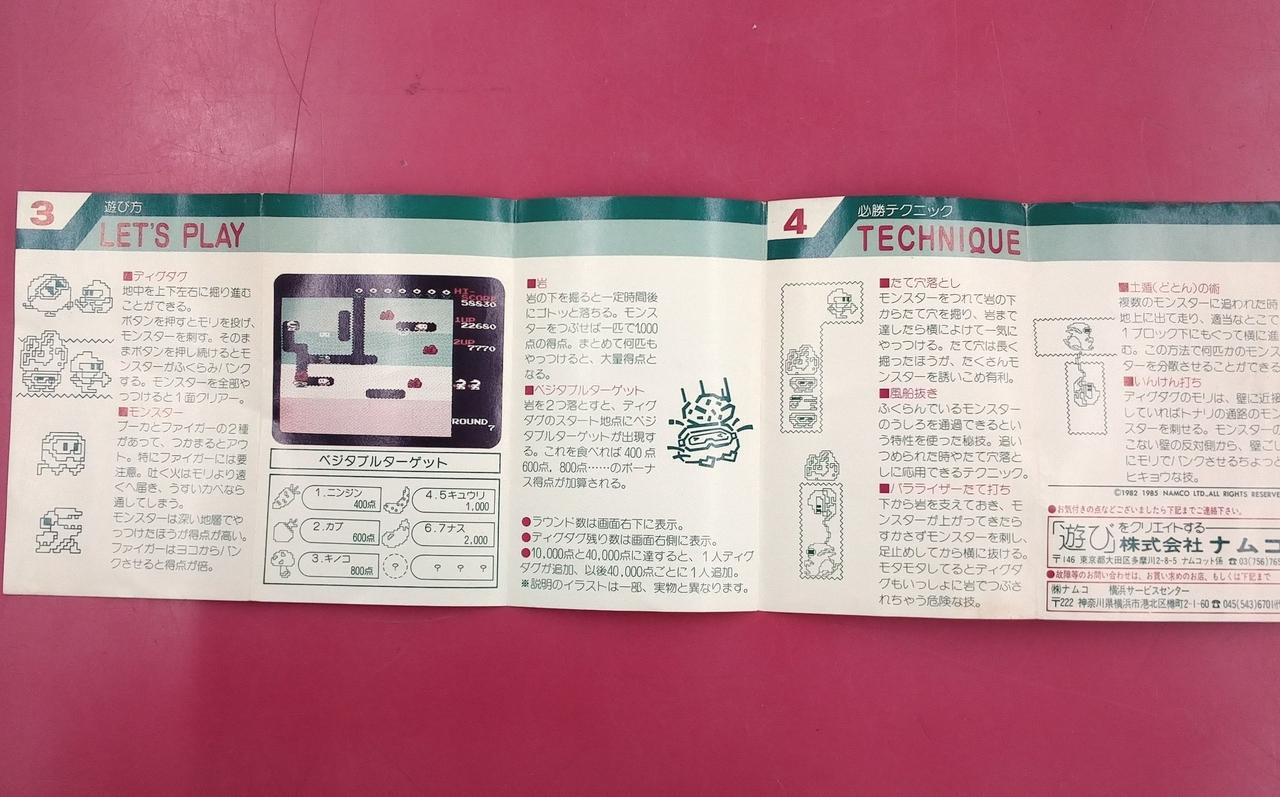 3
遊び方
LET'S PLAY
■ディグダグ
地中を上下左右に掘り進む
ことができる。
ボタンを押すとモリを投げ、
モンスターを刺す。そのま
まボタンを押し続けるとモ
ンスターがふくらみパンク
する。モンスターを全部や
っつけると1面クリアー。
■モンスター
プーカとファイガーの2種
があって、つかまるとアウ
ト。特にファイガーには要
注意。吐く火はモリより遠
くへ届き、うすいカベなら
通してしまう。
モンスターは深い地層でや
っつけたほうが得点が高い。
ファイガーはヨコからパン
クさせると得点が倍。
HI-
SCORE
58830
1UP
22680
2UP
7770
ROUND
7
ベジタブルターゲット
1.ニンジン
400点
4.5キュウリ
1,000
2.カブ
600点
6.7ナス
2,000
3.キノコ
800点
?
? ? ?
■岩
岩の下を掘ると一定時間後
にゴトッと落ちる。モンス
ターをつぶせば一匹で1,000
点の得点。まとめて何匹も
やっつけると、大量得点と
なる。
■ベジタブルターゲット
岩を2つ落とすと、ディグ
ダグのスタート地点にベジ
タブルターゲットが出現す
る。これを食べれば400点
600点、800点……のボーナ
ス得点が加算される。
●ラウンド数は画面右下に表示。
●ディグダグ残り数は画面右側に表示。
●10,000点と40,000点に達すると、1人ディグ
ダグが追加、以後40,000点ごとに1人追加。
※説明のイラストは一部、実物と異なります。
4
必勝テクニック
TECHNIQUE
■たて穴落とし
モンスターをつれて岩の下
からたて穴を掘り、岩まで
達したら横によけて一気に
やっつける。たて穴は長く
掘ったほうが、たくさんモ
ンスターを誘いこめ有利。
■風船抜き
ふくらんでいるモンスター
のうしろを通過できるとい
う特性を使った秘技。追い
つめられた時やたて穴落と
しに応用できるテクニック。
■パラライザーたて打ち
下から岩を支えておき、モ
ンスターが上がってきたら
すかさずモンスターを刺し、
足止めしてから横に抜ける。
モタモタしてるとディグダ
グもいっしょに岩でつぶさ
れちゃう危険な技。
■土遁(どとん)の術
複数のモンスターに追われた時
地上に出て走り、適当なとこで
1ブロック下にもぐって横に進
む。この方法で何匹かのモンス
ターを分散させることができる
■いんけん打ち
ディグダグのモリは、壁に近接
していればトナリの通路のモン
スターを刺せる。モンスターの
こない壁の反対側から、壁ご
にモリでパンクさせるちょっと
ヒキョウな技。
©1982 1985 NAMCO LTD.,ALL RIGHTS RESERVE
●お気付きの点などございましたら下記までご連絡下さい。
「遊び」をクリエイトする
株式会社 ナムコ
〒146 東京都大田区多摩川2-8-5 ナムコット係 ☎03(756)765
●故障等のお問い合わせは、お買い求めのお店、もしくは下記まで
㈱ナムコ 横浜サービスセンター
〒222 神奈川県横浜市港北区樽町2-1-60 ☎045(543)6701